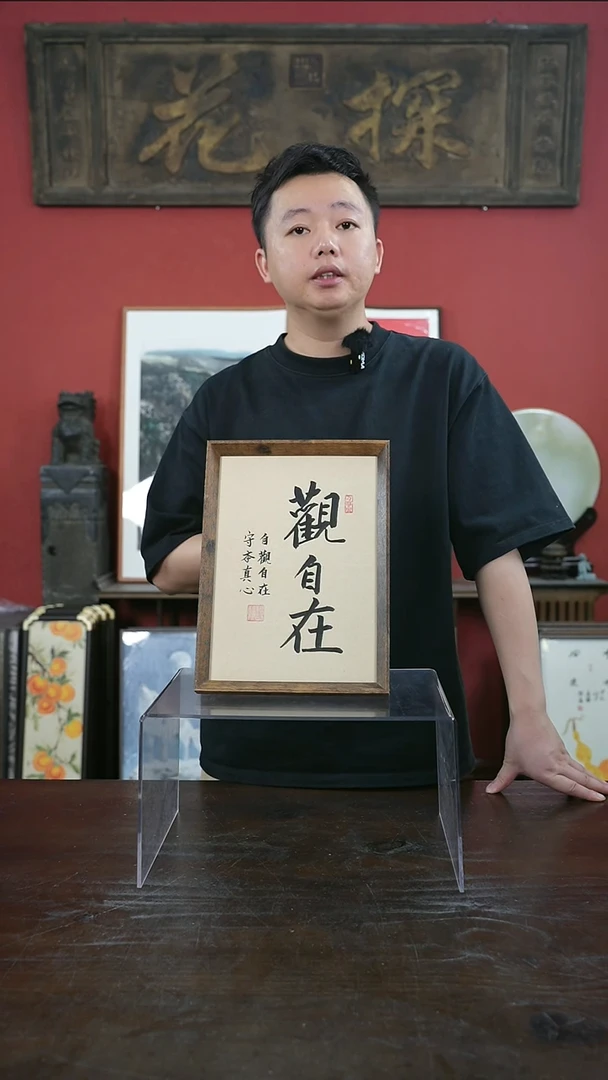 探花
觀自在
自觀自在
守本真心